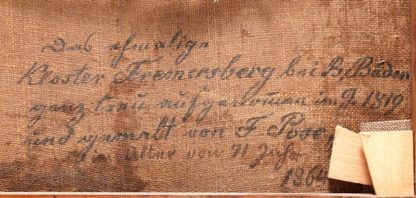 Das ehmalige
Kloster Fremersberg bei B. Baden
ganz treu aufgenommen im J. 1819
und gemalt von F. Pose,
im Alter von 71 Jahr
1864